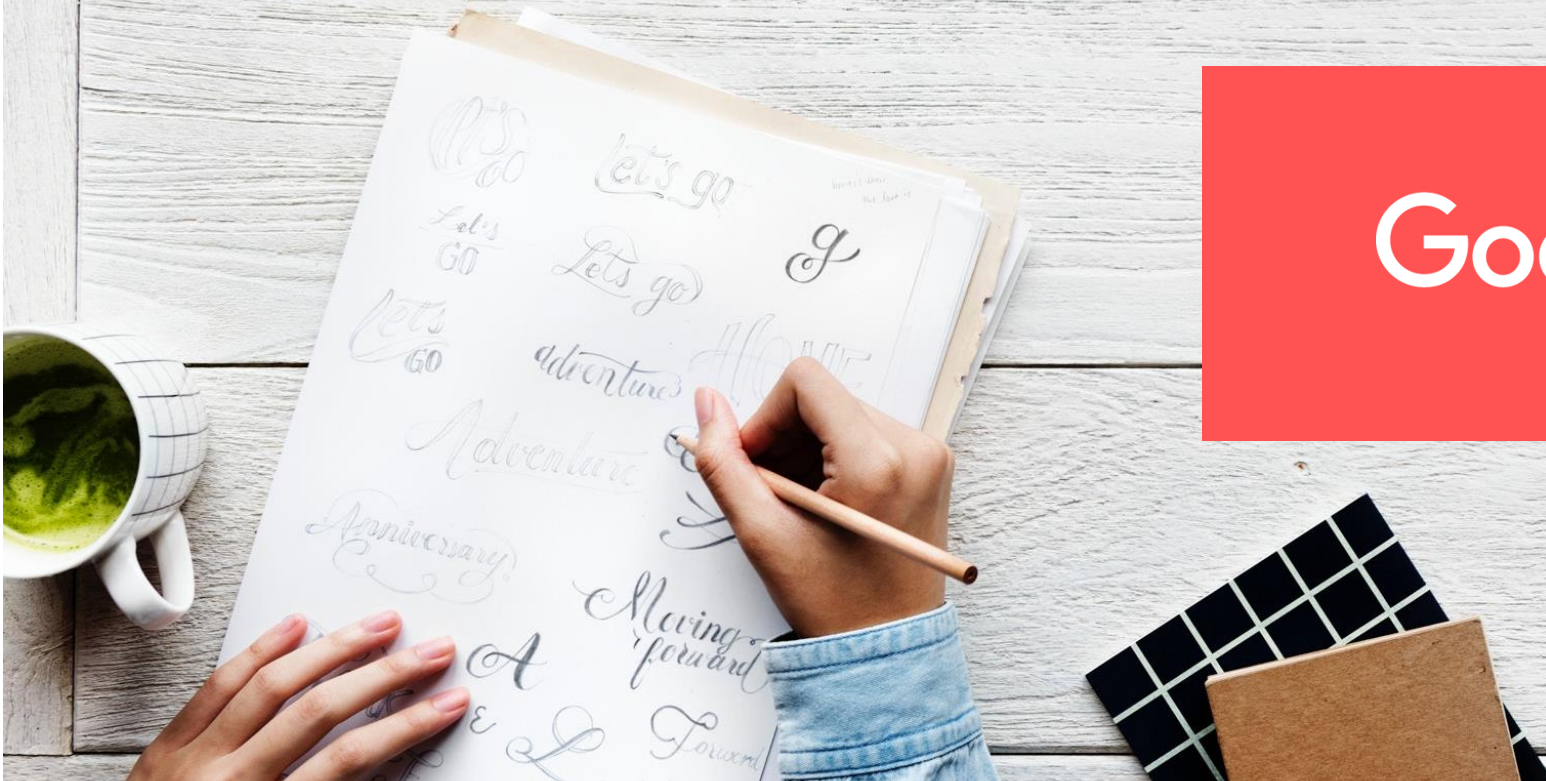 Let's
GO
Let's go
g
Let's
GO
Lets go
Let's
GO
adventures
HOME
Adventure
Anniversary
Moving
forward
A
E
L
Forword